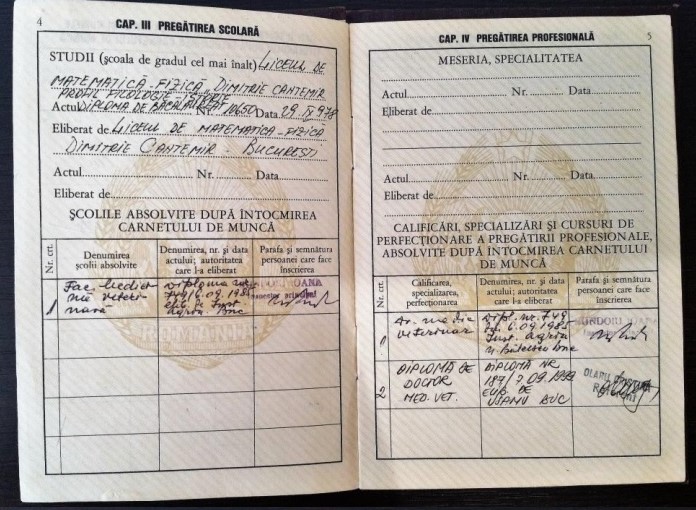 4
CAP. III PREGĂTIREA SCOLARĂ
STUDII (școala de gradul cel mai înalt) LICEUL DE
MATEMATICĂ-FIZICĂ "DIMITRIE CANTEMIR
PROFIL FILOLOGIE ISTORIE
Actul DIPLOMA DE BACALAUREAT Nr. 10450 Data 29 IX 978
Eliberat de LICEUL DE MATEMATICA-FIZICĂ
DIMITRIE CANTEMIR - BUCUREȘTI
Actul Nr. Data
Eliberat de
ȘCOLILE ABSOLVITE DUPĂ ÎNTOCMIREA
CARNETULUI DE MUNCĂ
Nr. crt.
Denumirea
școlii absolvite
Denumirea, nr. și data
actului; autoritatea
care l-a eliberat
Parafa și semnătura
persoanei care face
înscrierea
1
Fac. medici
nă veteri-
nară
Diploma nr.
749/6.09.1985
elib. de Inst.
agron. Buc
IOANA
principal
5
CAP. IV PREGĂTIREA PROFESIONALĂ
MESERIA, SPECIALITATEA
Actul Nr. Data
Eliberat de
Actul Nr. Data
Eliberat de
CALIFICĂRI, SPECIALIZĂRI ȘI CURSURI DE
PERFECȚIONARE A PREGĂTIRII PROFESIONALE,
ABSOLVITE DUPĂ ÎNTOCMIREA CARNETULUI
DE MUNCĂ
Nr. crt.
Calificarea,
specializarea,
perfecționarea
Denumirea, nr. și data
actului; autoritatea
care l-a eliberat
Parafa și semnătura
persoanei care face
înscrierea
1
Dr. medic
veterinar
dipl. nr. 749
6.09.1985
Inst. agron
N. Bălcescu Buc
GUNDORI IOANA
2
DIPLOMĂ DE
DOCTOR
MED. VET.
DIPLOMĂ NR
187/7.09.1992
ELIB. DE
USAMV BUC
OLARU